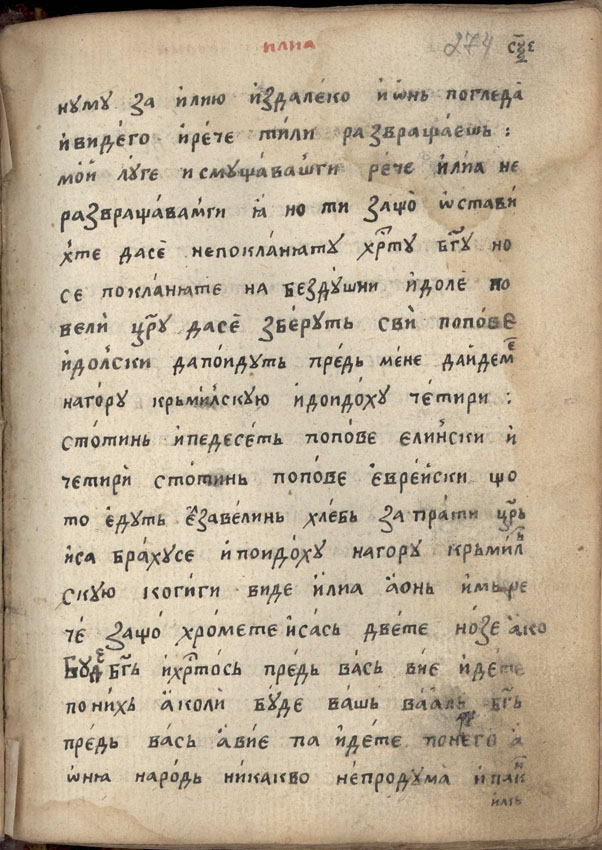 илиа 274 сѯ҃е
нуму за и҆лию и҆здале́ко и҆ѡ҆нь погледа̀
и҆виде́го и҆ре́че ти́ли развраща́ешь :
мо́й лу́ге и смуща́вашги ре́че и҆лиа не
развраща́вамги ꙗ҆ но ти защо̀ ѡ҆стави
хте дасѐ непокланꙗту хрⷭ҇ту бг҃у но
се покланꙗте на бездꙋ́шни и҆доле по
вели цр҃у дасѐ збе́руть свѝ попо́ве
и҆до́лски дапои́дуть пре́дь ме́не даи҆демⷷ
наго́ру крьми́лскую и҆доидо́ху че́тири :
сто́тинь и҆педесе́ть попо́ве ели́нски и҆
че́тирѝ сто́тинь попо́ве е҆вре́йски що
то е҆дуть е҆завели́нь хле́бь запра́ти цр҃ь
и҆са бра́хусе и҆поидо́ху наго́ру крьмил
скую когиги виде и҆лиа а҆онь и҆мьре
че́ защо́ хро́мете и҆са́сь две́те но́зе а҆ко
буде бг҃ь и҆хрⷭ҇то́сь пре́дь ва́сь вие и҆де́те
по ни́хь а҆колѝ бꙋ́де ва́шь ваа́ль бг҃ь
пре́дь ва́сь а҆ви́е па и҆де́те по него а҆
ѡ҆нꙗ наро́дь никакво непродума и҆пакⷩ
илїѐ